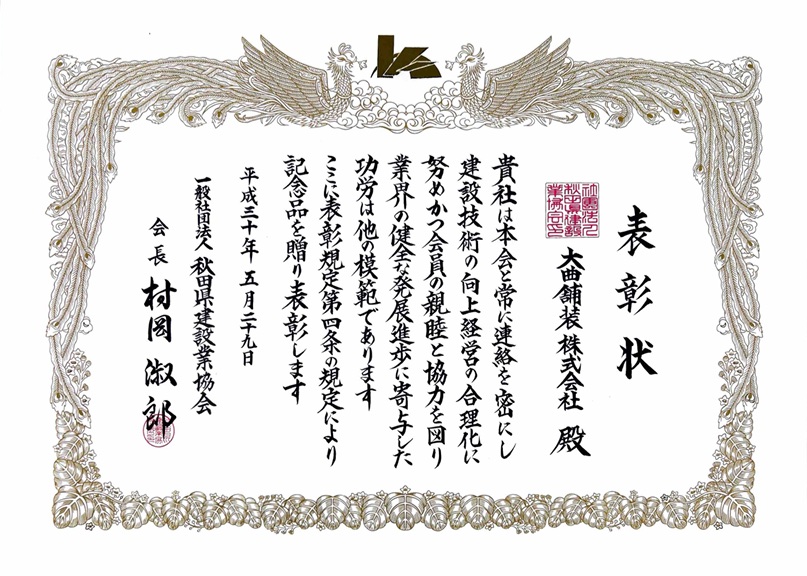 表彰状
大曲舗装株式会社 殿
貴社は本会と常に連絡を密にし
建設技術の向上経営の合理化に
努めかつ会員の親睦と協力を図り
業界の健全な発展進歩に寄与した
功労は他の模範であります
ここに表彰規定第四条の規定により
記念品を贈り表彰します
平成三十年 五月二十九日
一般社団法人 秋田県建設業協会
会長 村岡淑郎